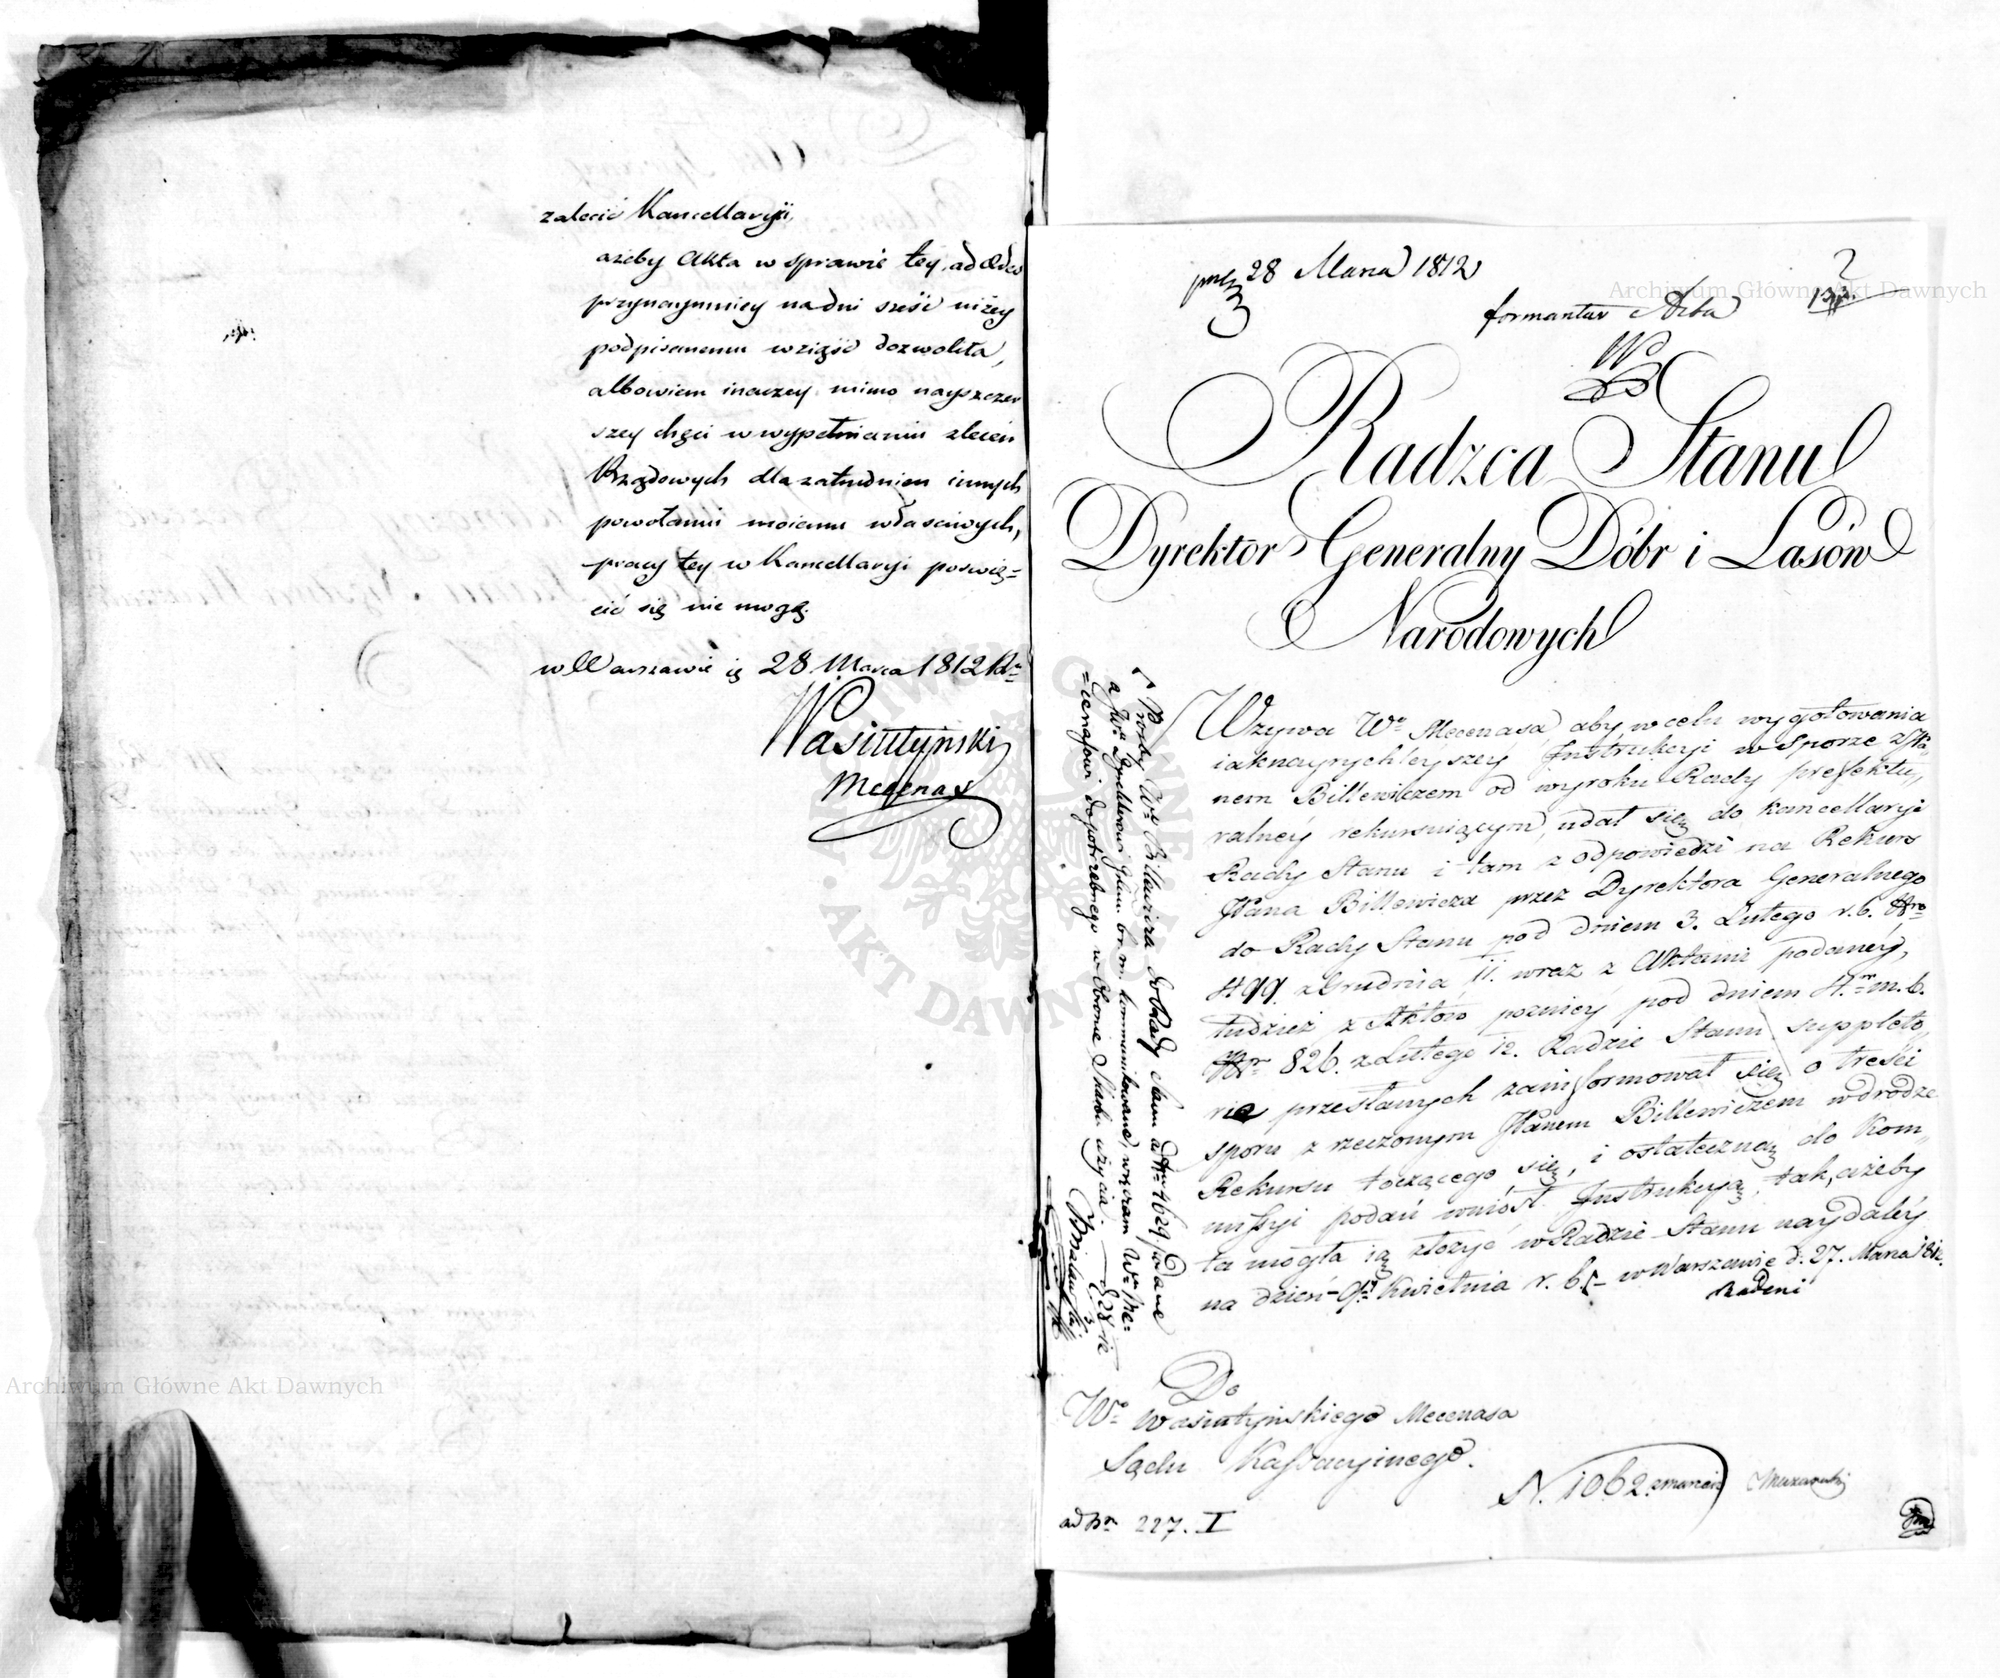 zalecić Kancellaryi,
ażeby Akta w sprawie tey, ad Ædes
przynaymniey na dni sześć niżey
podpisanemu wziąść dozwoliła,
albowiem inaczey mimo nayszczer
szey chęci w wypełnianiu zleceń
Rządowych dla zatrudnien innych
powołaniu moiemu właściwych,
pracy tey w Kancellaryi poswię=
cić się nie mogę.
w Warszawie dnia 28 Marca 1812 R.
Wasiutyński
Mecenas
28 Marca 1812
formantur Acta
Radzca Stanu
Dyrektor Generalny Dóbr i Lasów
Narodowych
Wzywa Wo Mecenasa aby w celu wygotowania
iaknayrychleyszey Instrukcyi w Sporze z JPa„
nem Billewiczem od wyroku Rady prefektu„
ralney rekursuiącym, udał się do kancellaryi
Rady Stanu i tam z odpowiedzi na Rekurs
JPana Billewicza przez Dyrektora Generalnego
do Rady Stanu pod dniem 3. Lutego r. b. Nro
499 z Grudnia 11. wraz z Aktami podaney,
tudzież z Aktów pozniey pod dniem 4. m. b.
Nr 826. z Lutego 12. Radzie Stanu suppleto„
rie przesłanych zainformował się o treści
sporu z rzeczonym JPanem Billewiczem w drodze
Rekursu toczącego się, i ostateczną do Kom„
missyi podań wniósł Instrukcyą, tak, ażeby
ta mogła ią złożyć w Radzie Stanu naydaley
na dzień 9. Kwietnia r. b. w Warszawie d. 27. Marca 1812.
Badeni
Prosby Wo Billewicza do Rady Stanu ad Nr 1629 podane
a JWu Dyrektorowi Gener. kommunikowane, wręczam Wu Me=
=cenasowi do potrzebnego w Obronie Skarbu użycia.
Do
Wo Wasiutyńskiego Mecenasa
Sądu Kassacyinego.
N. 1062 marca
ad Nr 227. I
Archiwum Główne Akt Dawnych
Archiwum Główne Akt Dawnych